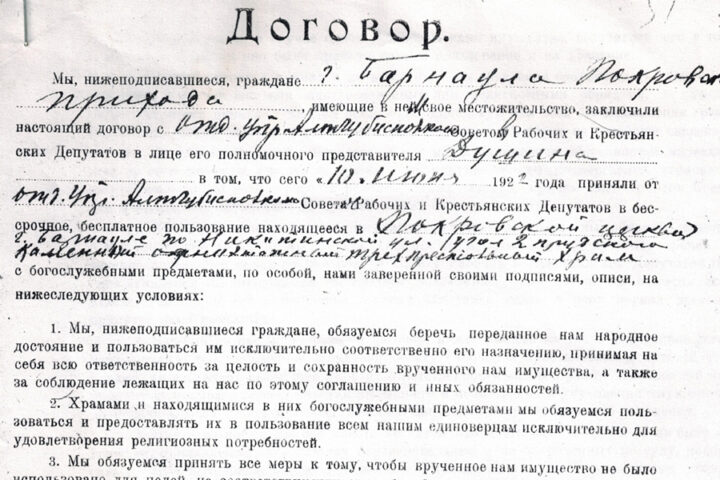 Договор.
Мы, нижеподписавшиеся, граждане г. Барнаула Покровск
прихода, имеющие в ней свое местожительство, заключили
настоящий договор с отд. Упр Алтгубисполкома Советов Рабочих и Крестьян-
ских Депутатов в лице его полномочного представителя Душина
в том, что сего „10 июня 1922 года приняли от
отд. Упр. Алтгубисполкома Совета Рабочих и Крестьянских Депутатов в бес-
срочное, бесплатное пользование находящееся в Покровской церкви
г. Барнауле по Никитинской ул. угол 2 Прудского
каменный трехпрестольный храм
с богослужебными предметами, по особой, нами заверенной своими подписями, описи, на
нижеследующих условиях:
1. Мы, нижеподписавшиеся граждане, обязуемся беречь переданное нам народное
достояние и пользоваться им исключительно соответственно его назначению, принимая на
себя всю ответственность за целость и сохранность врученного нам имущества, а также
за соблюдение лежащих на нас по этому соглашению и иных обязанностей.
2. Храмами и находящимися в них богослужебными предметами мы обязуемся поль-
зоваться и предоставлять их в пользование всем нашим единоверцам исключительно для
удовлетворения религиозных потребностей.
3. Мы обязуемся принять все меры к тому, чтобы врученное нам имущество не было
использовано для целей, не соответств